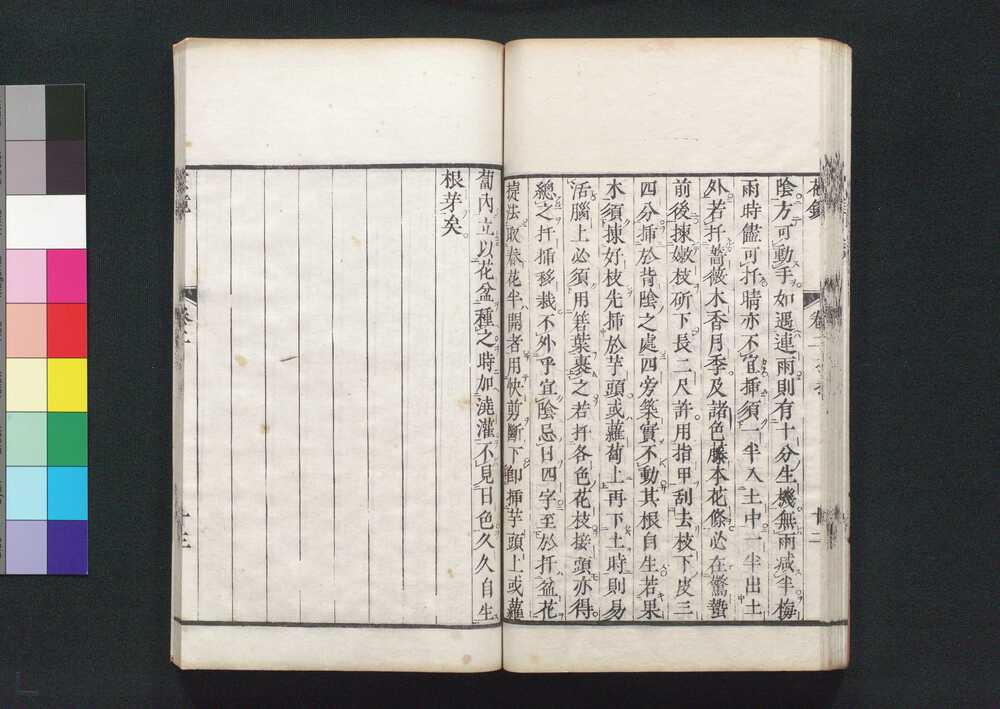 陰方可動手如遇連雨則有十分生機無雨減半梅
雨時儘可扦晴亦不宜插須一半入土中一半出土
外若扦薔薇木香月季及諸色藤本花條必在驚蟄
前後揀嫩枝斫下長二尺許用指甲刮去枝下皮三
四分插於背陰之處四旁築實不動其根自生若果
木須揀好枝先插於芋頭或蘿蔔上再下土時則易
活腦上必須用箬葉裹之若扦各色花枝接頭亦得
總之扦插移栽不外乎宜陰忌日四字至於扦盆花
捷法取春花半開者用快剪斷下卽插芋頭上或蘿
蔔內立以花盆種之時加澆灌不見日色久久自生
根芽矣
十三